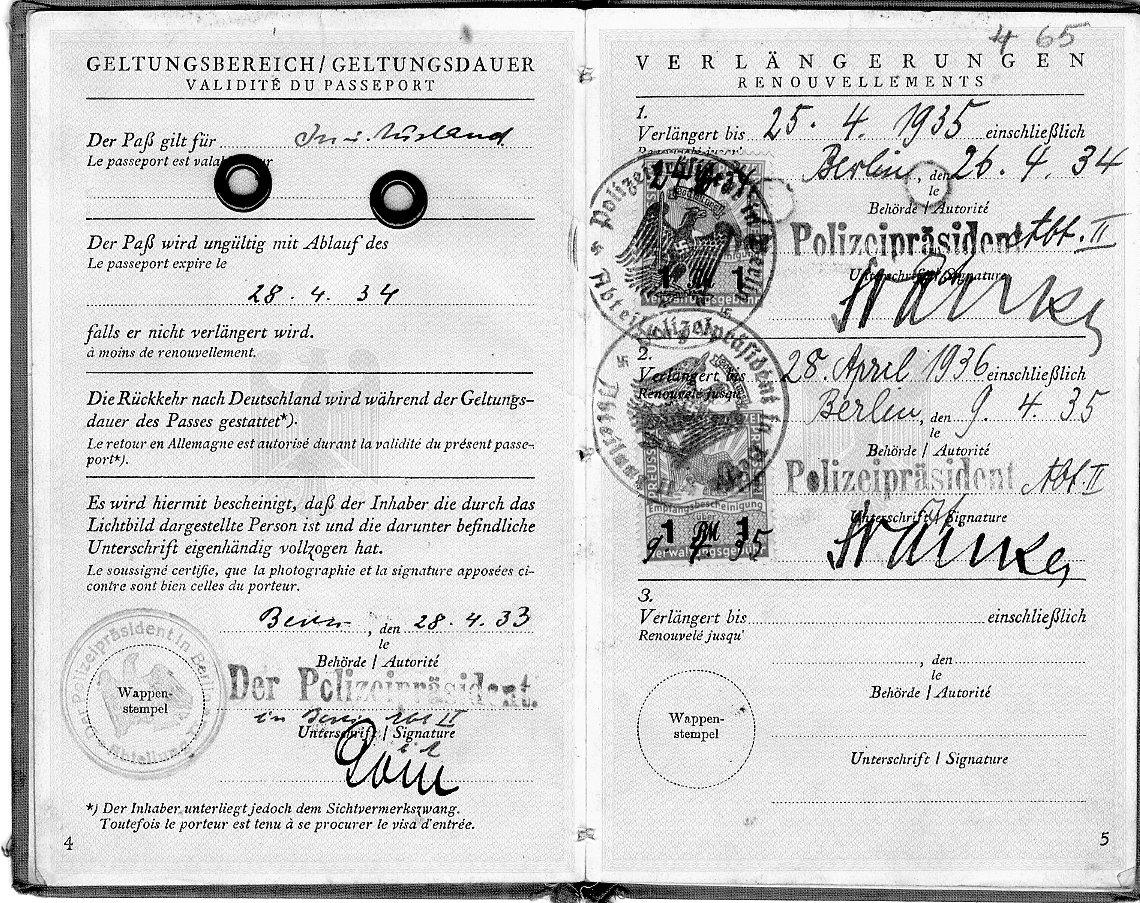 GELTUNGSBEREICH / GELTUNGSDAUER
VALIDITÉ DU PASSEPORT
Der Paß gilt für In u. Ausland
Le passeport est valab
Der Paß wird ungültig mit Ablauf des
Le passeport expire le
28. 4. 34
falls er nicht verlängert wird.
à moins de renouvellement.
Die Rückkehr nach Deutschland wird während der Geltungs-
dauer des Passes gestattet*).
Le retour en Allemagne est autorisé durant la validité du présent passe-
port*).
Es wird hiermit bescheinigt, daß der Inhaber die durch das
Lichtbild dargestellte Person ist und die darunter befindliche
Unterschrift eigenhändig vollzogen hat.
Le soussigné certifie, que la photographie et la signature apposées ci-
contre sont bien celles du porteur.
Berlin, den 28. 4. 33
le
Behörde / Autorité
Der Polizeipräsident.
in Berlin Abt II
Unterschrift / Signature
Wappen-
stempel
Der Polizeipräsident in Berlin
Abteilung
*) Der Inhaber unterliegt jedoch dem Sichtvermerkszwang.
Toutefois le porteur est tenu à se procurer le visa d'entrée.
4
4 65
VERLÄNGERUNGEN
RENOUVELLEMENTS
1.
Verlängert bis 25. 4. 1935 einschließlich
Berlin, den 26. 4. 34
le
Behörde / Autorité
Der Polizeipräsident Abt. II
Unterschrift / Signature
Polizeipräsident in Berlin
1 RM 1
Verwaltungsgebühr
2.
Verlängert bis 28. April 1936 einschließlich
Renouvelé jusqu'
Berlin, den 9. 4. 35
le
Behörde / Autorité
Polizeipräsident Abt II
Unterschrift / Signature
Polizeipräsident in Berlin
PREUSSEN
Empfangsbescheinigung
1 RM 1
9 35
Verwaltungsgebühr
3.
Verlängert bis einschließlich
Renouvelé jusqu'
, den
le
Behörde / Autorité
Wappen-
stempel
Unterschrift / Signature
5